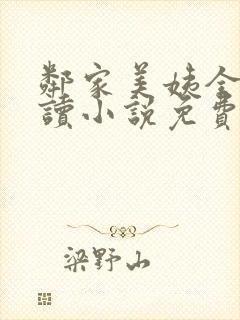 鄰家美姨全
讀小說免費
梁野山